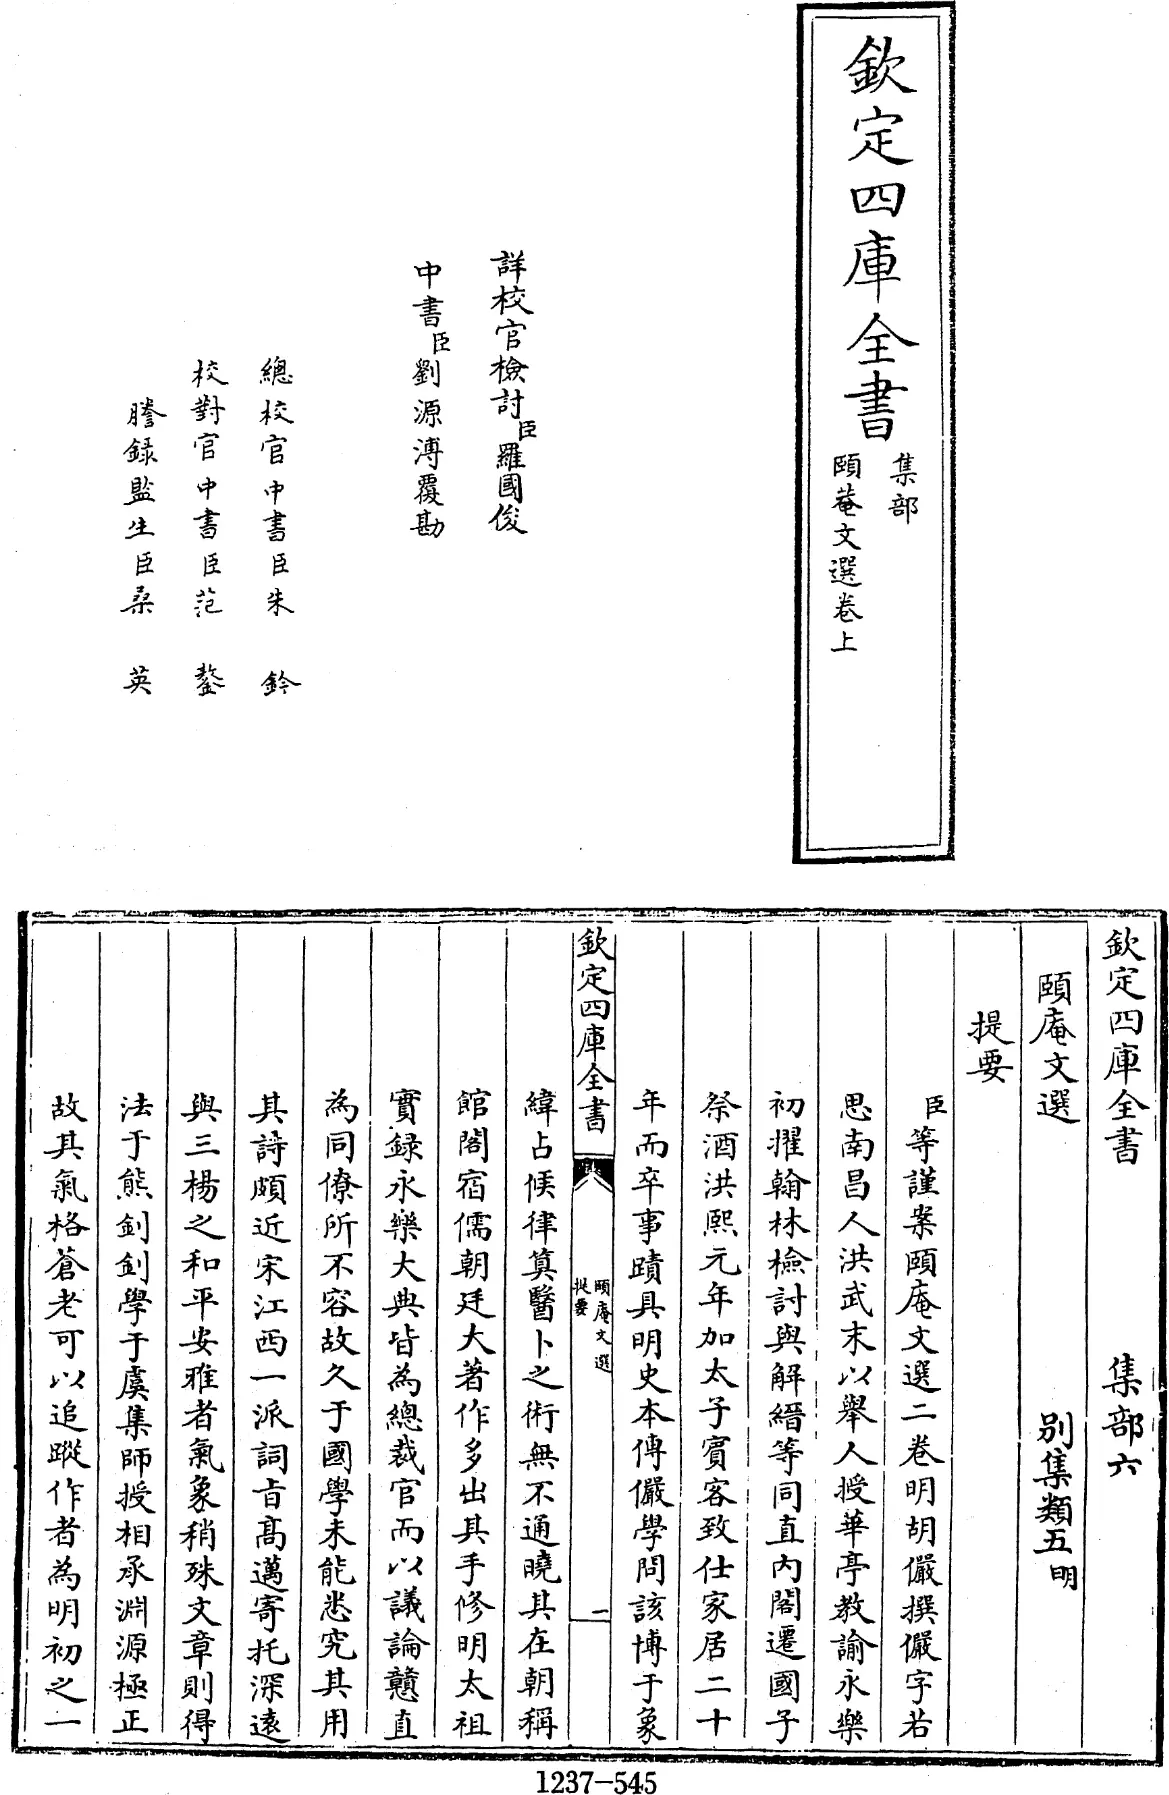 欽定四庫全書
集部
頤菴文選卷上
詳校官檢討臣羅國俊
中書臣劉源溥覆勘
總校官中書臣朱 鈐
校對官中書臣范 鏊
謄錄監生臣桑 英
欽定四庫全書 集部六
頤庵文選 別集類五明
提要
臣等謹案頤庵文選二卷明胡儼撰儼字若
思南昌人洪武末以舉人授華亭教諭永樂
初擢翰林檢討與解縉等同直內閣遷國子
祭酒洪熙元年加太子賓客致仕家居二十
年而卒事蹟具明史本傳儼學問該博于象
欽定四庫全書
頤庵文選
提要
一
緯占候律算醫卜之術無不通曉其在朝稱
館閣宿儒朝廷大著作多出其手修明太祖
實錄永樂大典皆為總裁官而以議論戇直
為同僚所不容故久于國學未能悉究其用
其詩頗近宋江西一派詞旨高邁寄托深遠
與三楊之和平安雅者氣象稍殊文章則得
法于熊釗釗學于虞集師授相承淵源極正
故其氣格蒼老可以追蹤作者為明初之一
1237-545